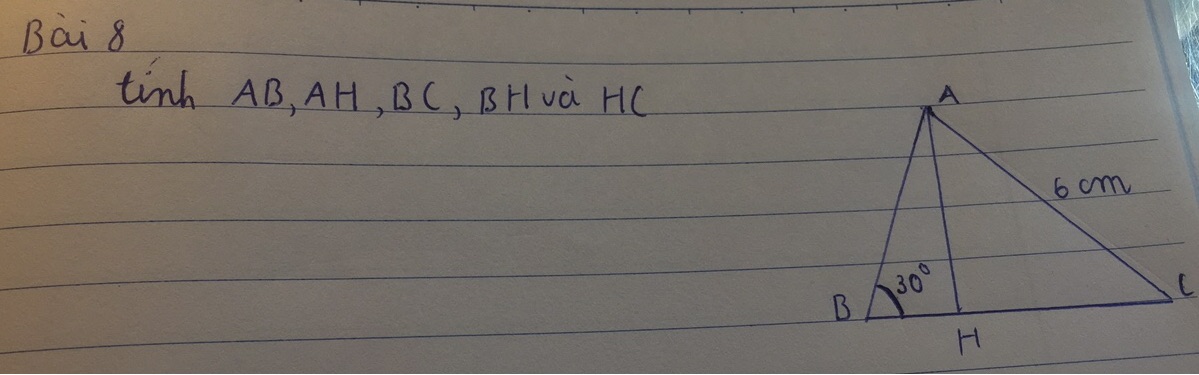 Bài 8
tính AB, AH, BC, BH và HC
A
6 cm
30°
B
C
H